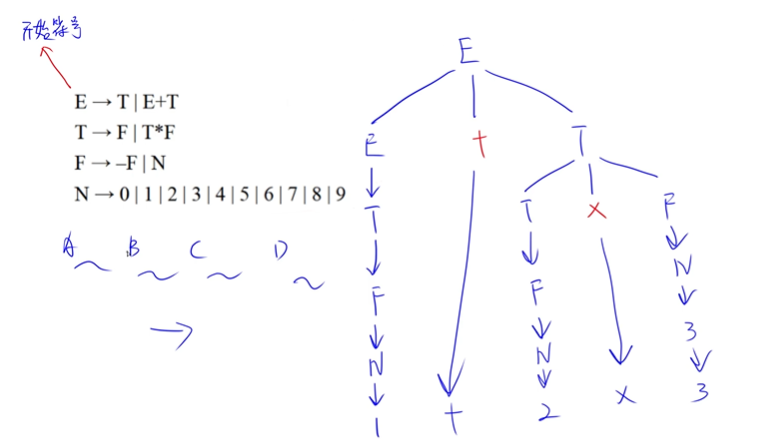 开始符号
E → T | E+T
T → F | T*F
F → –F | N
N → 0 | 1 | 2 | 3 | 4 | 5 | 6 | 7 | 8 | 9
A B C D
→
E
E + T
T T × F
F F N
N N 3
1 + 2 × 3